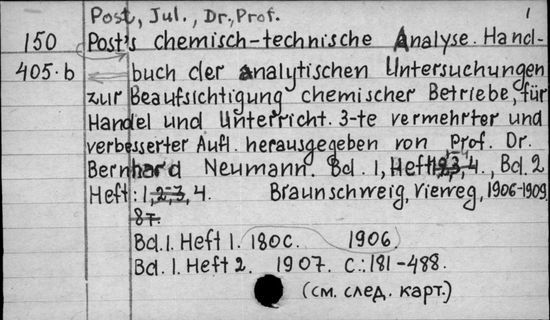 Post, Jul., Dr., Prof. 1
150 Post's chemisch-technische Analyse. Hand-
405.b buch der analytischen Untersuchungen
zur Beaufsichtigung chemischer Betriebe, für
Handel und Unterricht. 3-te vermehrter und
verbesserter Aufl. herausgegeben von Prof. Dr.
Bernhard Neumann. Bd. 1, Heft 1,2,3,4., Bd. 2
Heft: 1,2,3, 4. Braunschweig, Vieweg, 1906-1909.
8т.
Bd. 1. Heft 1. 180 c. 1906.
Bd. 1. Heft 2. 1907. c.: 181-488.
(см. след. карт.)